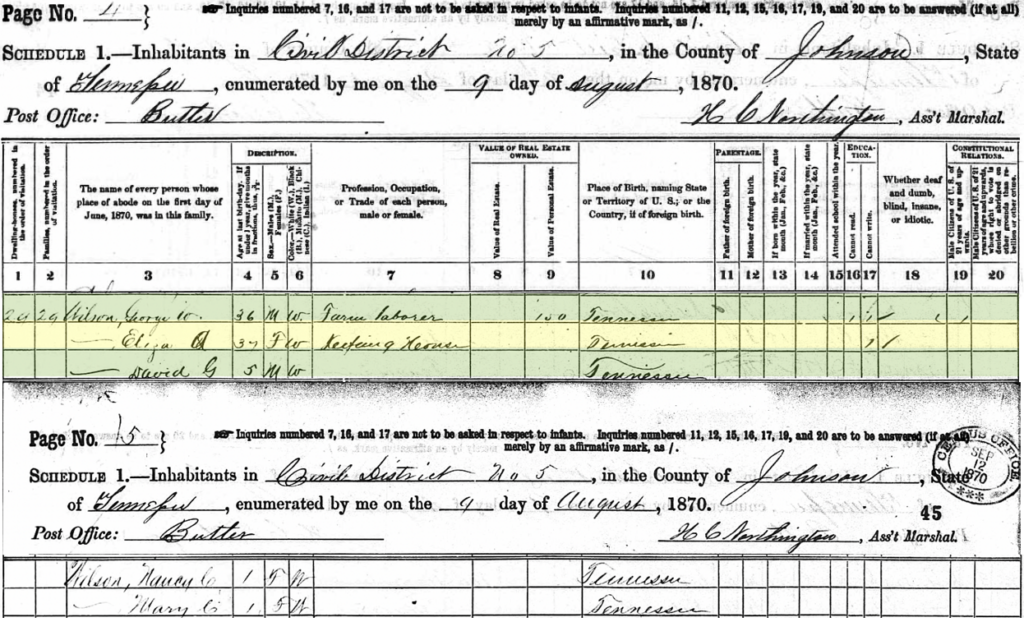 Page No. 4 } Inquiries numbered 7, 16, and 17 are not to be asked in respect to infants. Inquiries numbered 11, 12, 15, 16, 17, 19, and 20 are to be answered (if at all)
merely by an affirmative mark, as /.
SCHEDULE 1.—Inhabitants in Civil District No 5, in the County of Johnson, State
of Tennessee, enumerated by me on the 9 day of August, 1870.
Post Office: Butler
H C Northington, Ass't Marshal.
DESCRIPTION. VALUE OF REAL ESTATE OWNED. PARENTAGE. EDUCATION. CONSTITUTIONAL RELATIONS.
Dwelling-houses, numbered in the order of visitation.
Families, numbered in the order of visitation.
The name of every person whose place of abode on the first day of June, 1870, was in this family.
Age at last birth-day. If under 1 year, give months in fractions, thus
Sex.—Males (M.), Females (F.)
Color.—White (W.), Black (B.), Mulatto (M.), Chinese (C.), Indian (I.)
Profession, Occupation, or Trade of each person, male or female.
Value of Real Estate.
Value of Personal Estate.
Place of Birth, naming State or Territory of U. S.; or the Country, if of foreign birth.
Father of foreign birth.
Mother of foreign birth.
If born within the year, state month (Jan., Feb., &c.)
If married within the year, state month (Jan., Feb., &c.)
Attended school within the year.
Cannot read.
Cannot write.
Whether deaf and dumb, blind, insane, or idiotic.
Male Citizens of U. S. of 21 years of age and upwards.
Male Citizens of U. S. of 21 years of age and upwards, whose right to vote is denied or abridged on other grounds than rebellion or other crime.
1 2 3 4 5 6 7 8 9 10 11 12 13 14 15 16 17 18 19 20
29 29 Wilson, George W. 36 M W Farm laborer 100 Tennessee 1 1 / 1
— Eliza 37 F W Keeping House Tennessee 1 /
— David G 5 M W Tennessee
Page No. 5 } Inquiries numbered 7, 16, and 17 are not to be asked in respect to infants. Inquiries numbered 11, 12, 15, 16, 17, 19, and 20 are to be answered (if at all)
merely by an affirmative mark, as /.
SCHEDULE 1.—Inhabitants in Civil District No 5, in the County of Johnson, State
of Tennessee, enumerated by me on the 9 day of August, 1870.
CENSUS OFFICE
SEP
12
1870
45
Post Office: Butler
H C Northington, Ass't Marshal.
Wilson, Nancy C 1 F W Tennessee
— Mary C 1 F W Tennessee